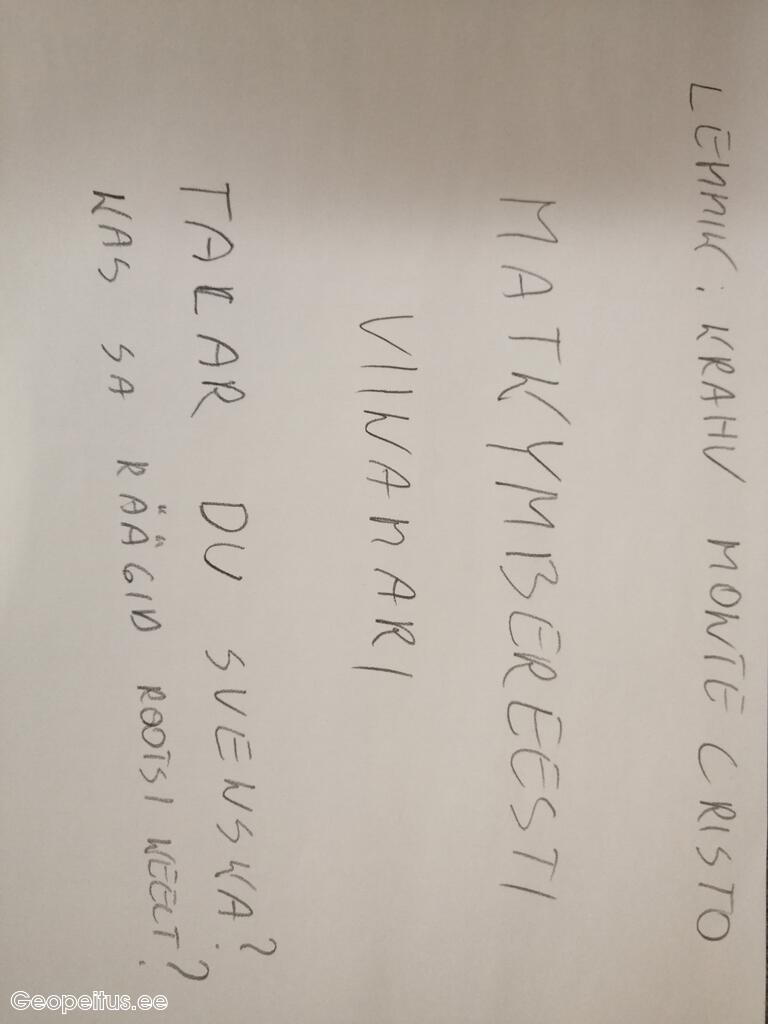 LEMMIK: KRAHV MONTE CRISTO
MATKYMBEREESTI
VIINAMARI
TALAR DU SVENSKA?
KAS SA RÄÄGID ROOTSI KEELT?
Geopeitus.ee